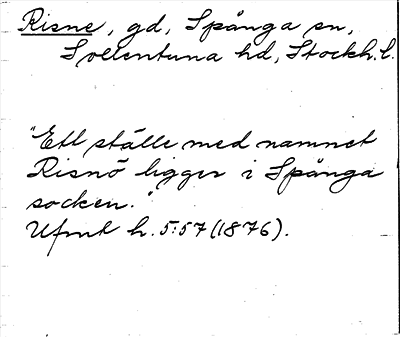 Risne, gd, Spånga sn,
Sollentuna hd, Stockh. l.
"Ett ställe med namnet
Risnö ligger i Spånga
socken."
Ufmt h. 5:57 (1876).